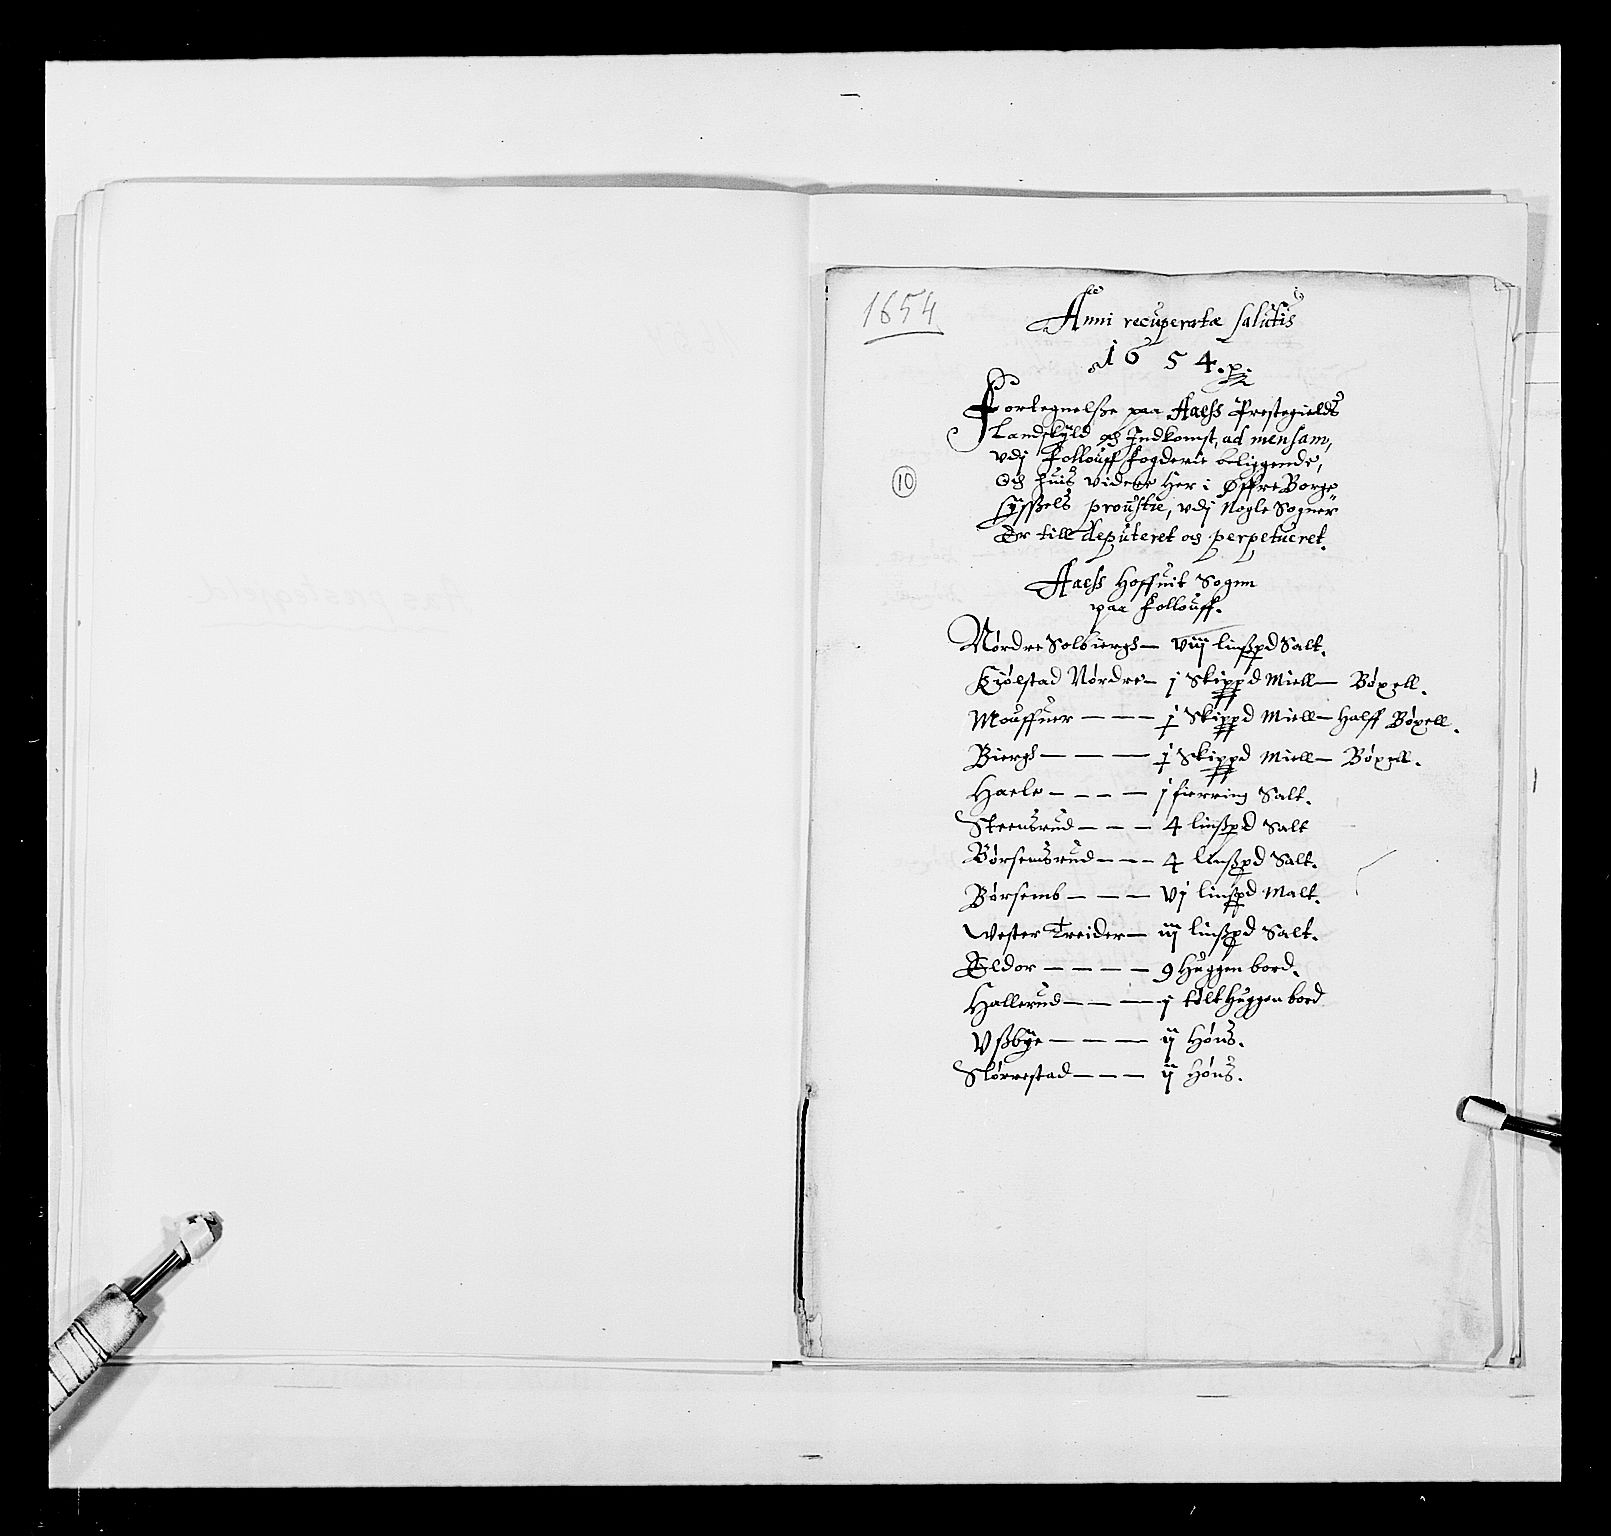 1654
Anni recuperatæ salutis
1654.
Fortegnelsße paa Aaeß Prestegields
Landskÿld och Indkomst, ad mensam,
vdj Follouff Fogderie beliggende,
10
Och huis videre her i Øffre Borge
sysßels proustie, vdj Nogle Sogner
Er till deputeret og perpetueret.
Aaeß Hoffuit Sogen
paa Follouff.
Nørdre Solbiergh — viij lißpd Salt.
Kiølstad Nørdre — j Skippd Miell — Bøxell.
Mouffuer — — — j Skippd Miell — Halff Bøxell.
Biergh — — — j Skippd Miell — Bøxell.
Haele — — — — j fierring Salt.
Steensrud — — — 4 lißpd Salt
Børsemsrud — — — 4 lißpd Salt.
Børsemb — — — vj lißpd Malt.
Vester Treider — iij lißpd Salt.
Eldor — — — — 9 Huggen bord.
Hallerud — — — j tølt Huggen bord
Vßbÿe — — — — ij Høns.
Slørrestad — — — ij Høns.